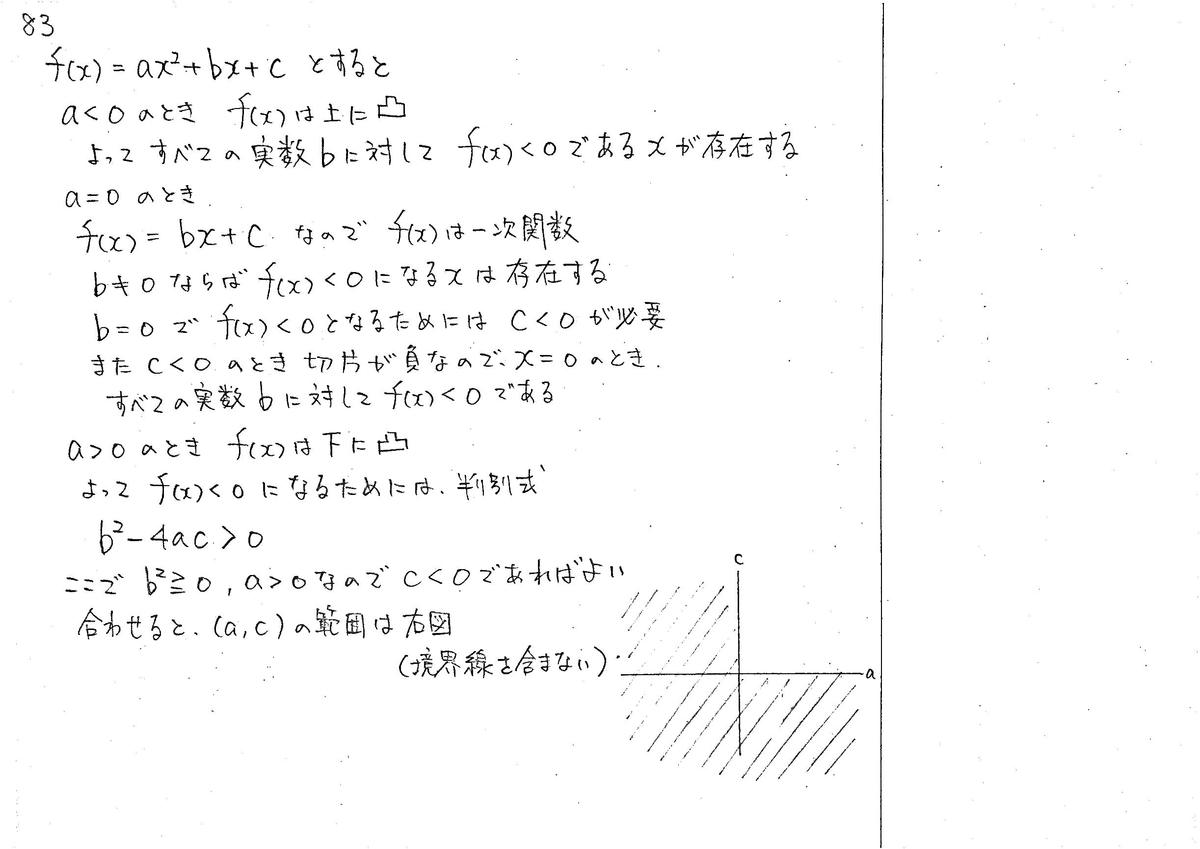 83
f(x) = ax²+bx+c とすると
a<0 のとき f(x)は上に凸
よって すべての実数bに対して f(x)<0であるxが存在する
a=0 のとき.
f(x) = bx+c. なので f(x)は一次関数
b≠0ならばf(x)<0になるxは存在する
b=0で f(x)<0となるためには c<0が必要
また c<0のとき切片が負なので、x=0のとき.
すべての実数bに対してf(x)<0である
a>0のとき f(x)は下に凸
よって f(x)<0 になるためには、判別式
b²-4ac>0
ここで b²≧0, a>0なので c<0であればよい
合わせると、(a,c)の範囲は右図
(境界線を含まない).
c
a